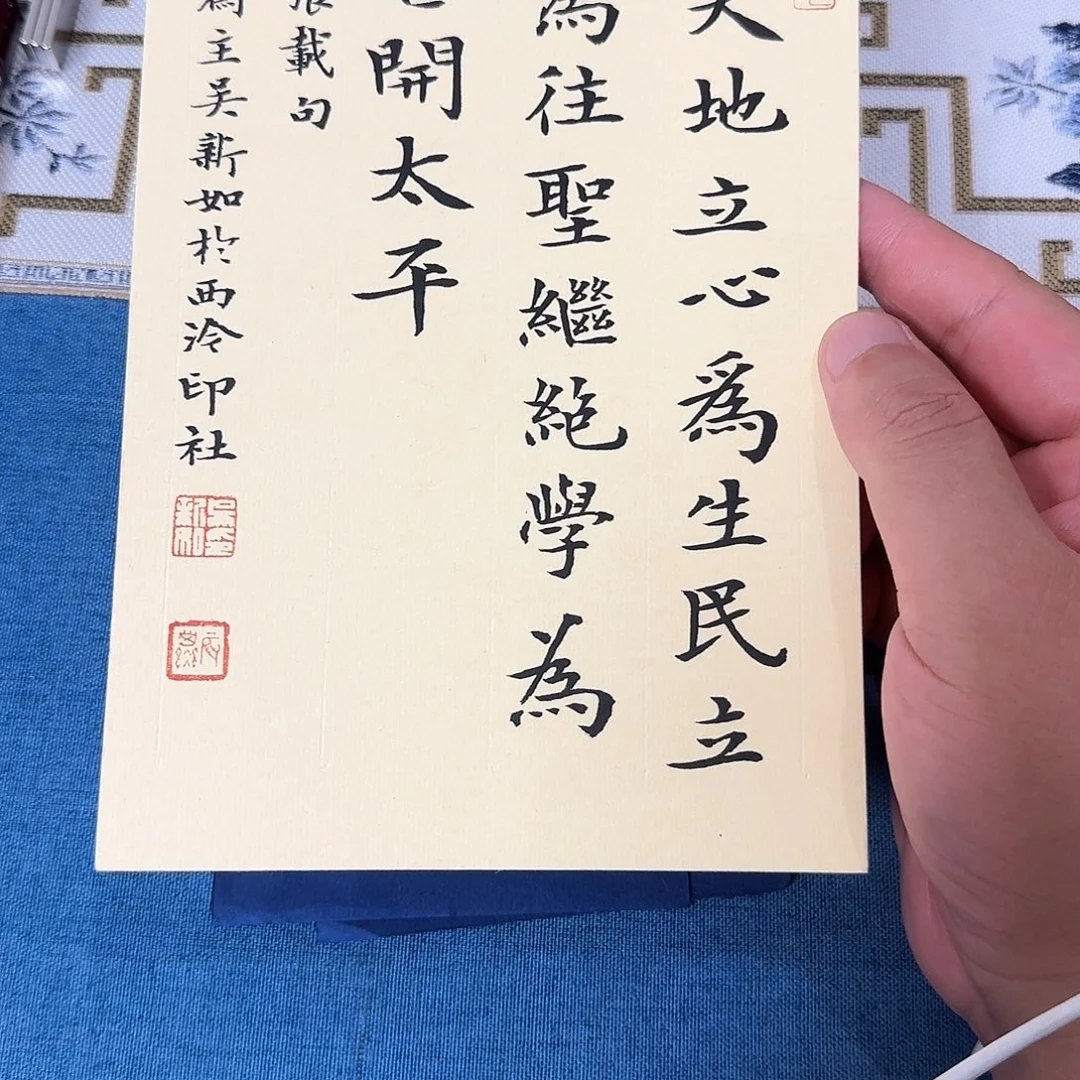 天地立心爲生民立
為往聖繼絕學為
世開太平
張載句
為主吴新如於西泠印社